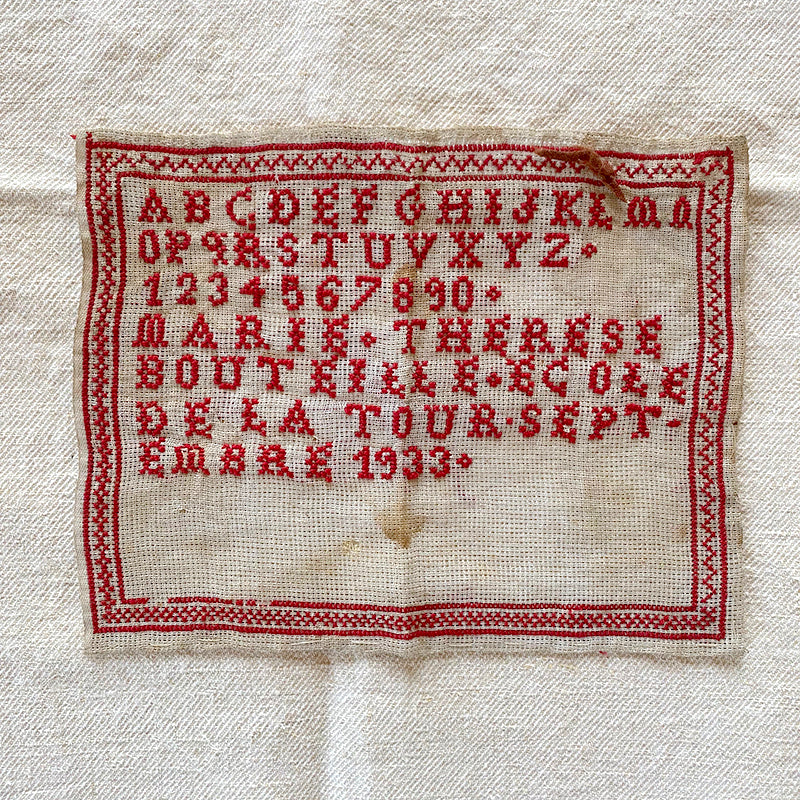 ABCDEFGHIJKLMN
OPQRSTUVXYZ
1234567890
MARIE·THERESE
BOUTEILLE·ECOLE
DE LA TOUR·SEPT-
EMBRE 1933